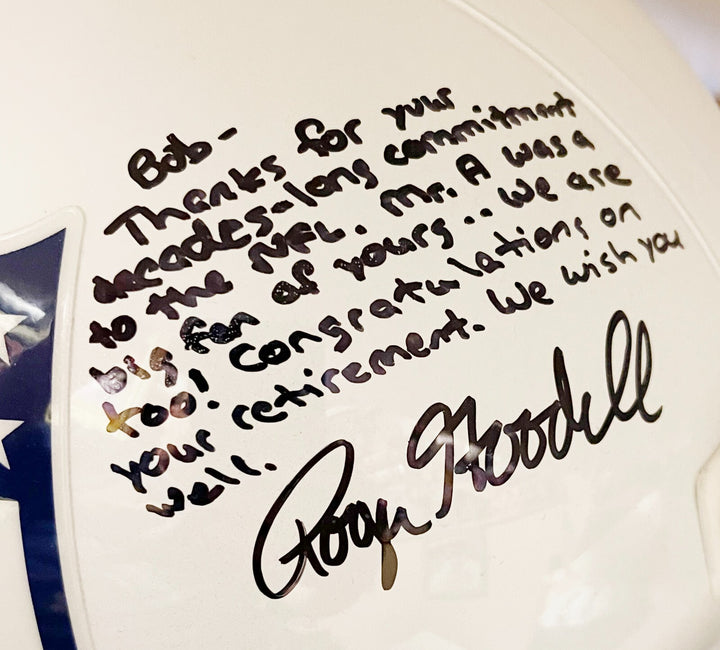 Bob-
Thanks for your
decades-long commitment
to the NFL. Mr. A was a
big fan of yours.. We are
too! Congratulations on
your retirement. We wish you
well.
Roger Goodell